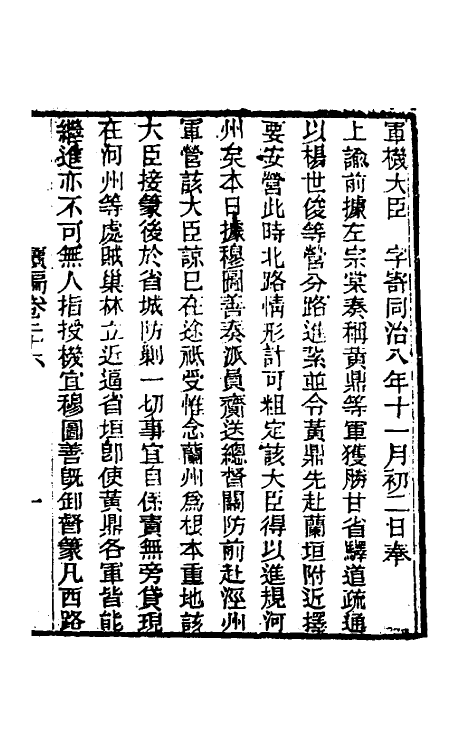 軍機大臣　字寄同治八年十一月初二日奉
上諭前據左宗棠奏稱黃鼎等軍獲勝甘省驛道疏通
以楊世俊等營分路進紮並令黃鼎先赴蘭垣附近擇
要安營此時北路情形計可粗定該大臣得以進規河
州矣本日據穆圖善奏派員齎送總督關防前赴涇州
軍營該大臣諒已在途祇受惟念蘭州爲根本重地該
大臣接篆後於省城防剿一切事宜自係責無旁貸現
在河州等處賊巢林立近逼省垣卽使黃鼎各軍皆能
繼進亦不可無人指授機宜穆圖善旣卸督篆凡西路
續編卷二十六
一